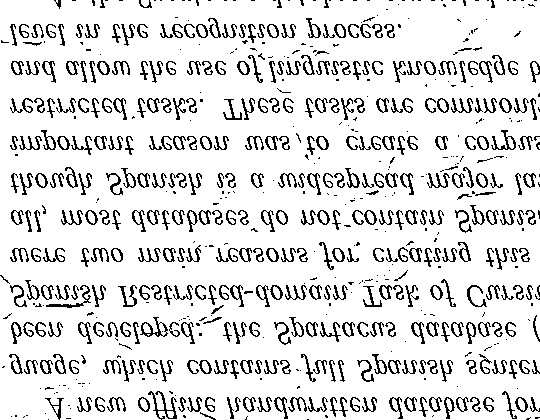 A new offline handwritten database for
guage, which contains full Spanish senten
been developed: the Spartacus database (
Spanish Restricted-domain Task of Cursiv
were two main reasons for creating this
all, most databases do not contain Spanis
though Spanish is a widespread major lan
important reason was to create a corpus
restricted tasks. These tasks are commonly
and allow the use of linguistic knowledge b
level in the recognition process.
As the Spartacus database consisted